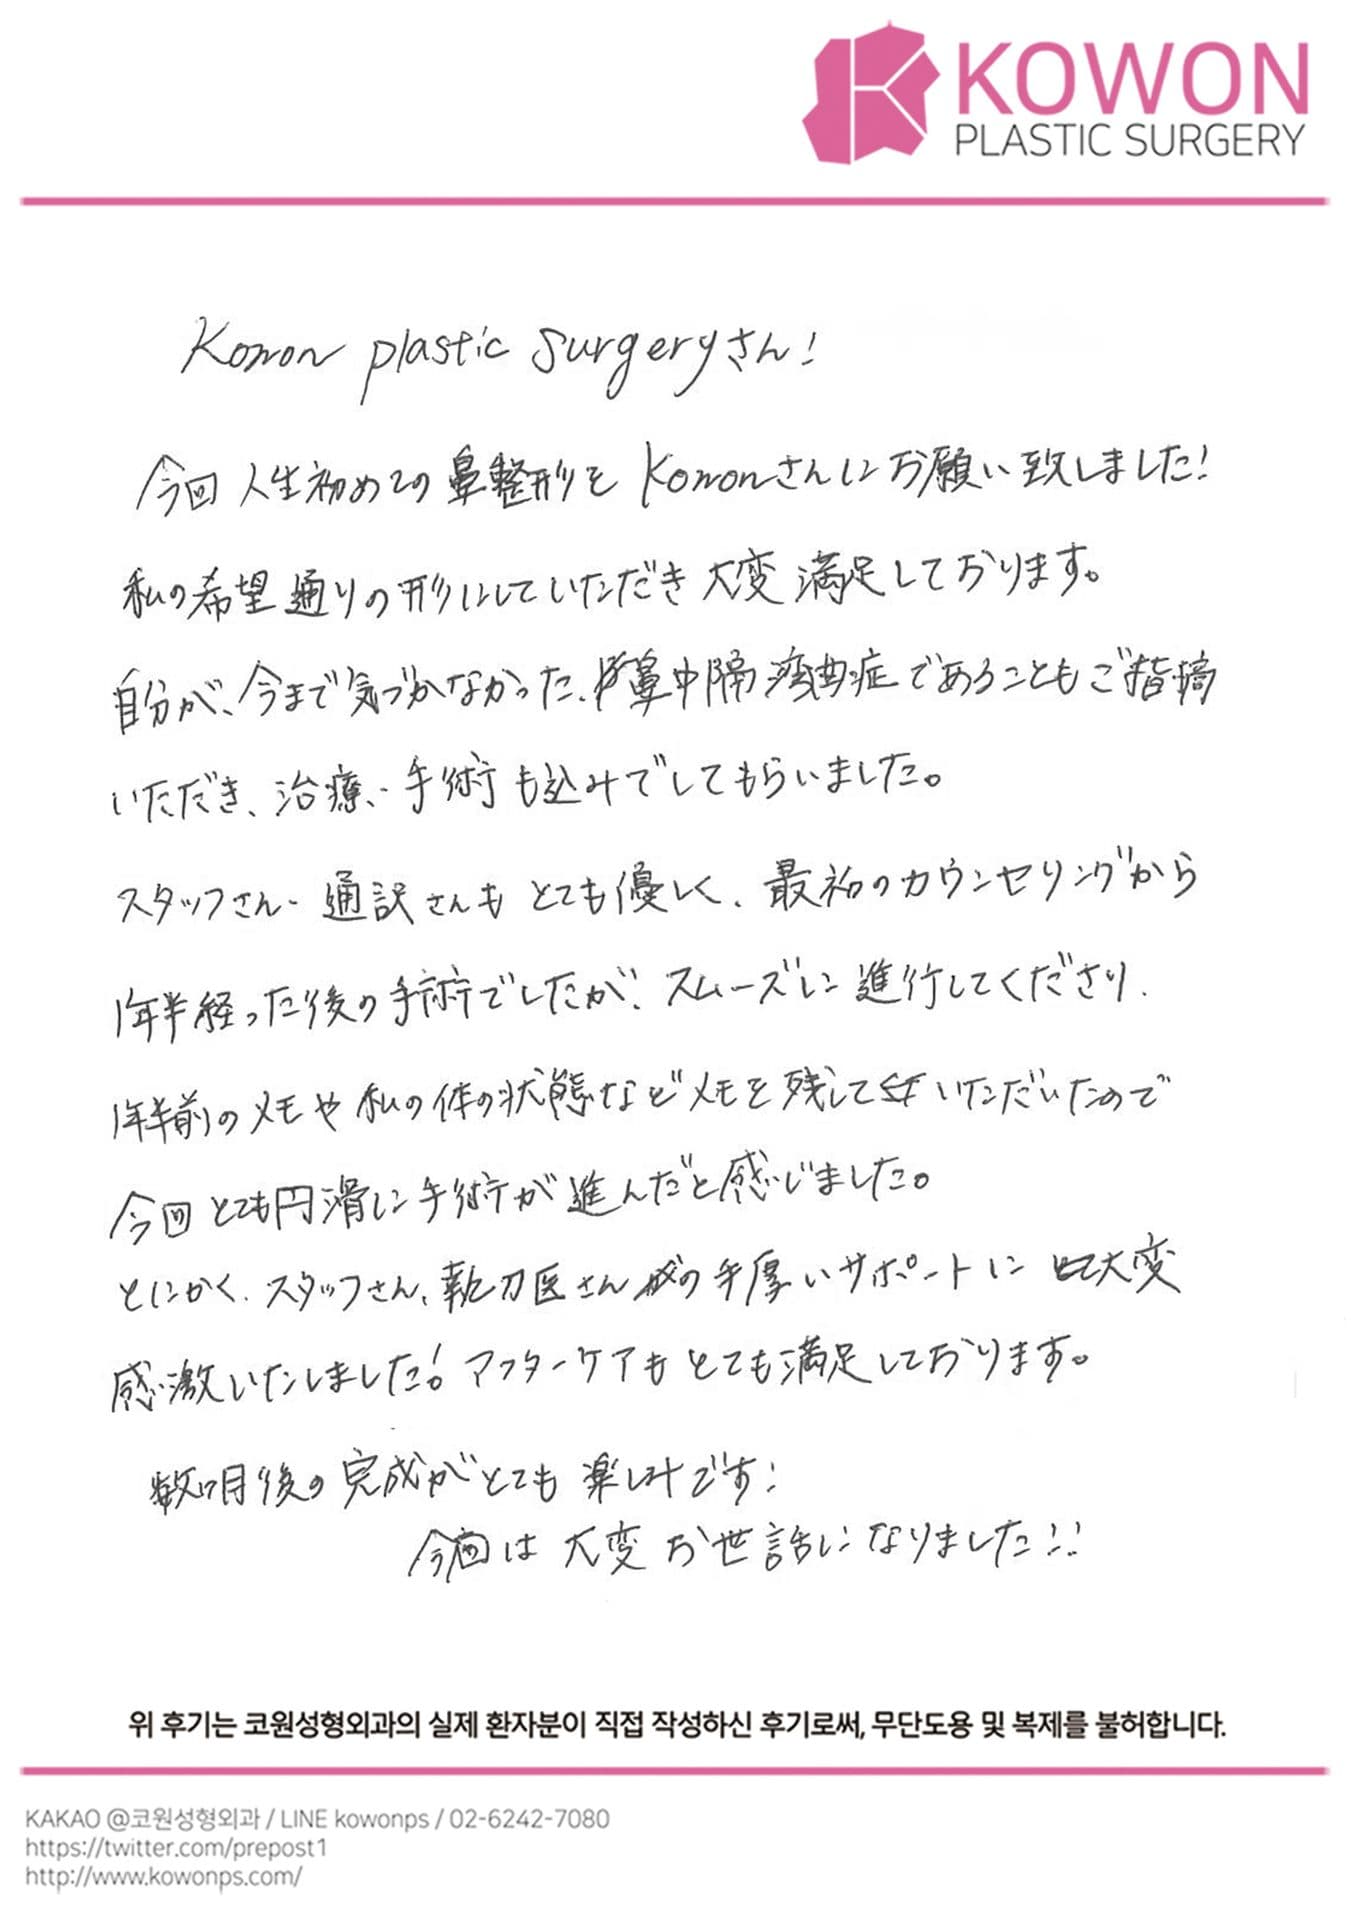 KOWON
PLASTIC SURGERY
Kowon plastic surgeryさん!
今回人生初めての鼻整形を Kowonさんにお願い致しました!
私の希望通りの形にしていただき大変満足しております。
自分が、今まで気づかなかった、鼻中隔湾曲症であることもご指摘
いただき、治療・手術も込みでしてもらいました。
スタッフさん・通訳さんもとても優しく、最初のカウンセリングから
1年半経った後の手術でしたが、スムーズに進行してくださり、
1年半前のメモや私の体の状態などメモを残していただいたので
今回とても円滑に手術が進んだと感じました。
とにかく、スタッフさん、執刀医さんの手厚いサポートに大変
感激いたしました!アフターケアもとても満足しております。
数ヶ月後の完成がとても楽しみです!
今回は大変お世話になりました!!
위 후기는 코원성형외과의 실제 환자분이 직접 작성하신 후기로써, 무단도용 및 복제를 불허합니다.
KAKAO @코원성형외과 / LINE kowonps / 02-6242-7080
https://twitter.com/prepost1
http://www.kowonps.com/